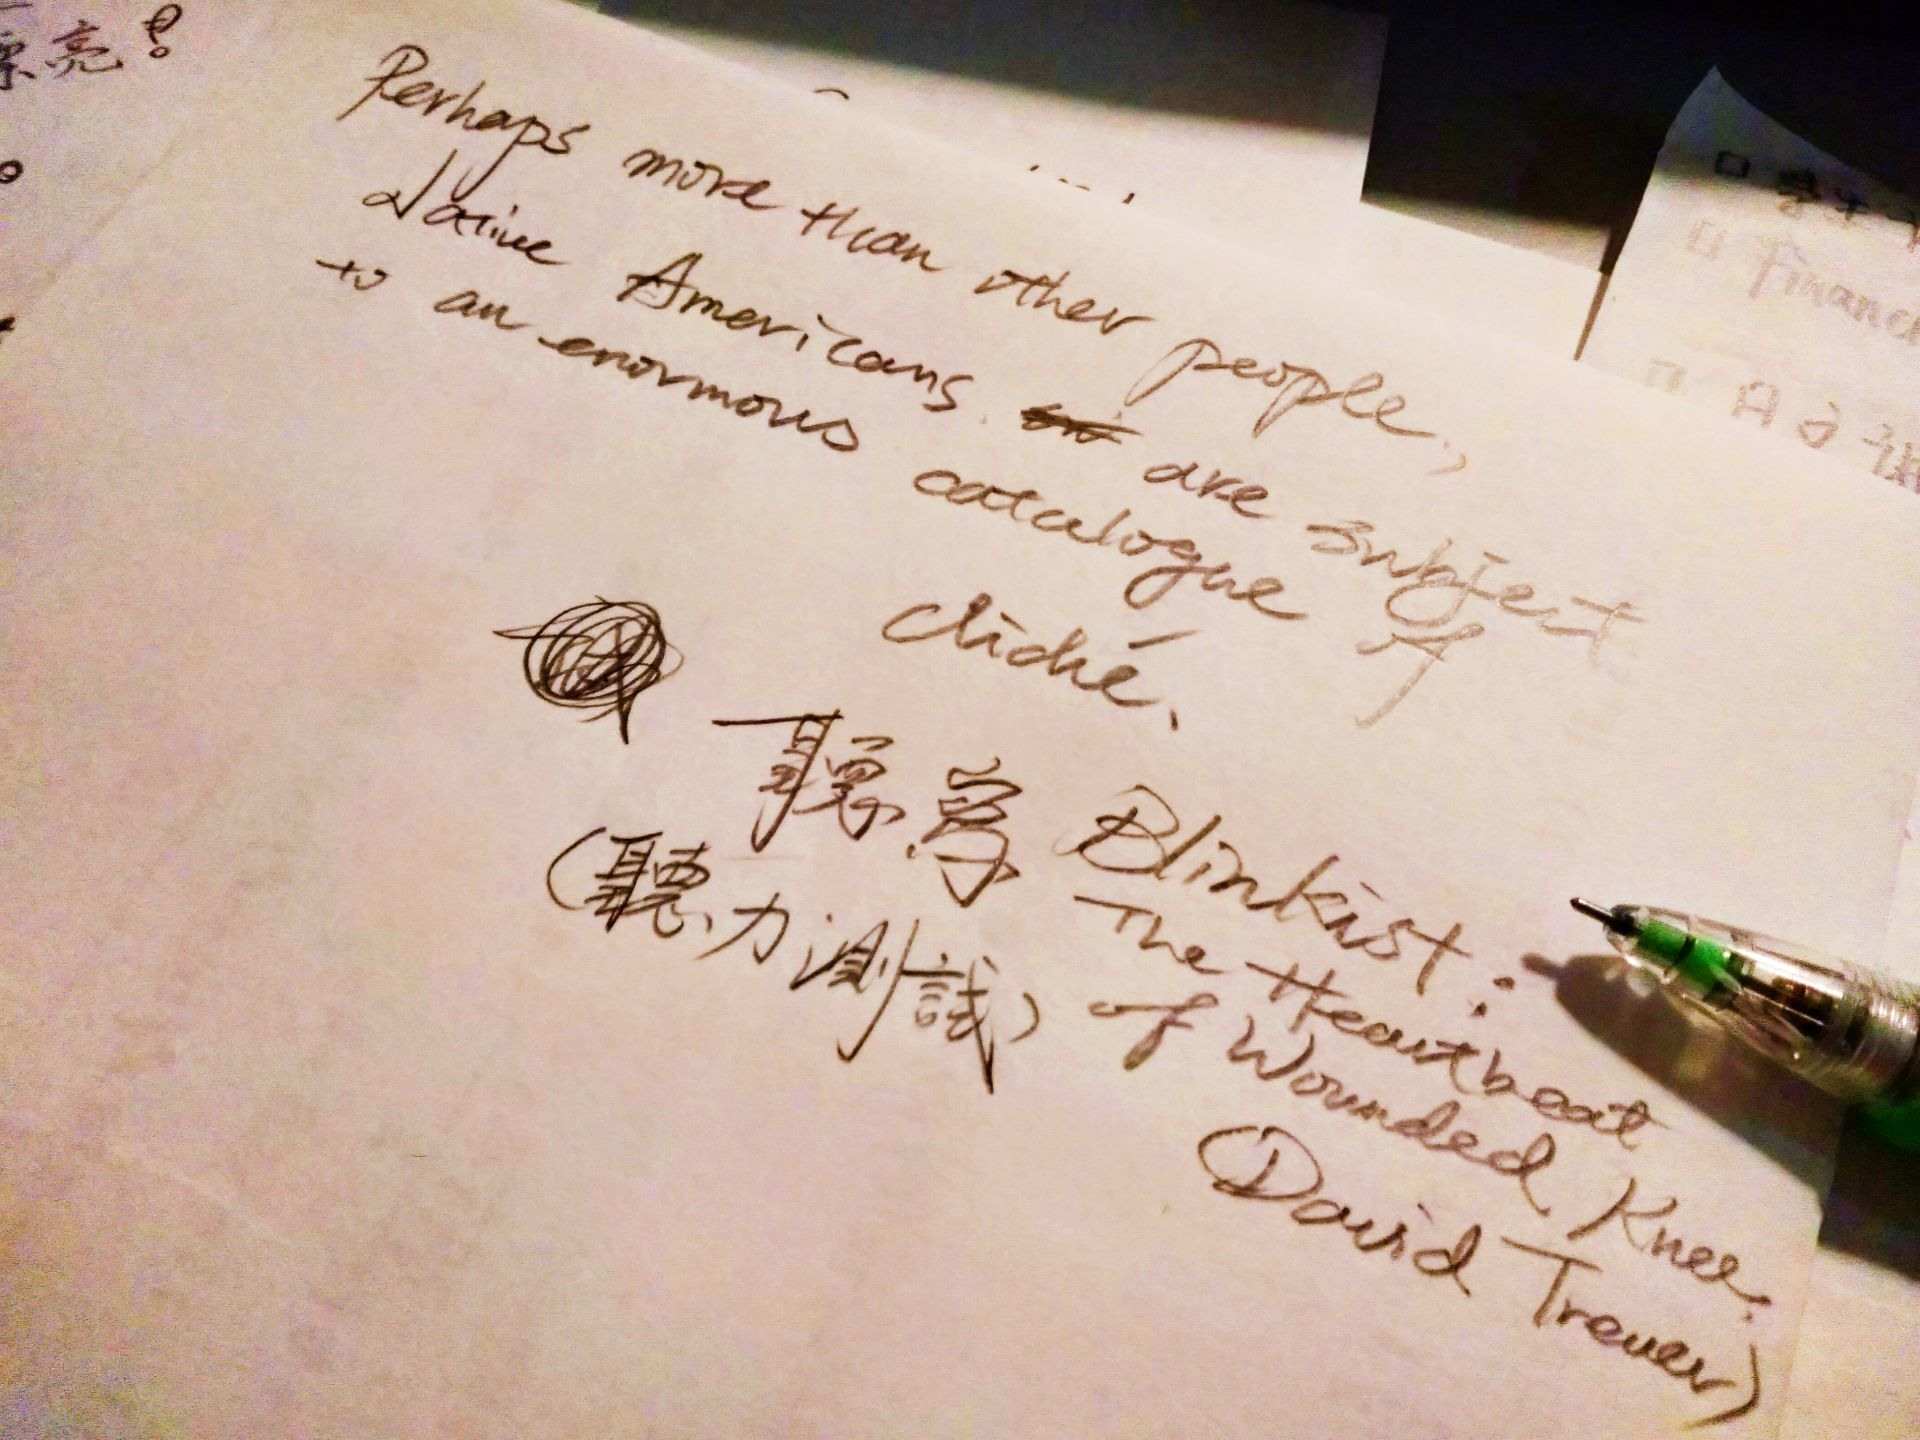 漂亮!
Perhaps more than other people,
Native Americans are subject
to an enormous catalogue of
cliché.
聽寫 Blinkist:
(聽力測試) The Heartbeat
of Wounded Knee.
(David Treuer)